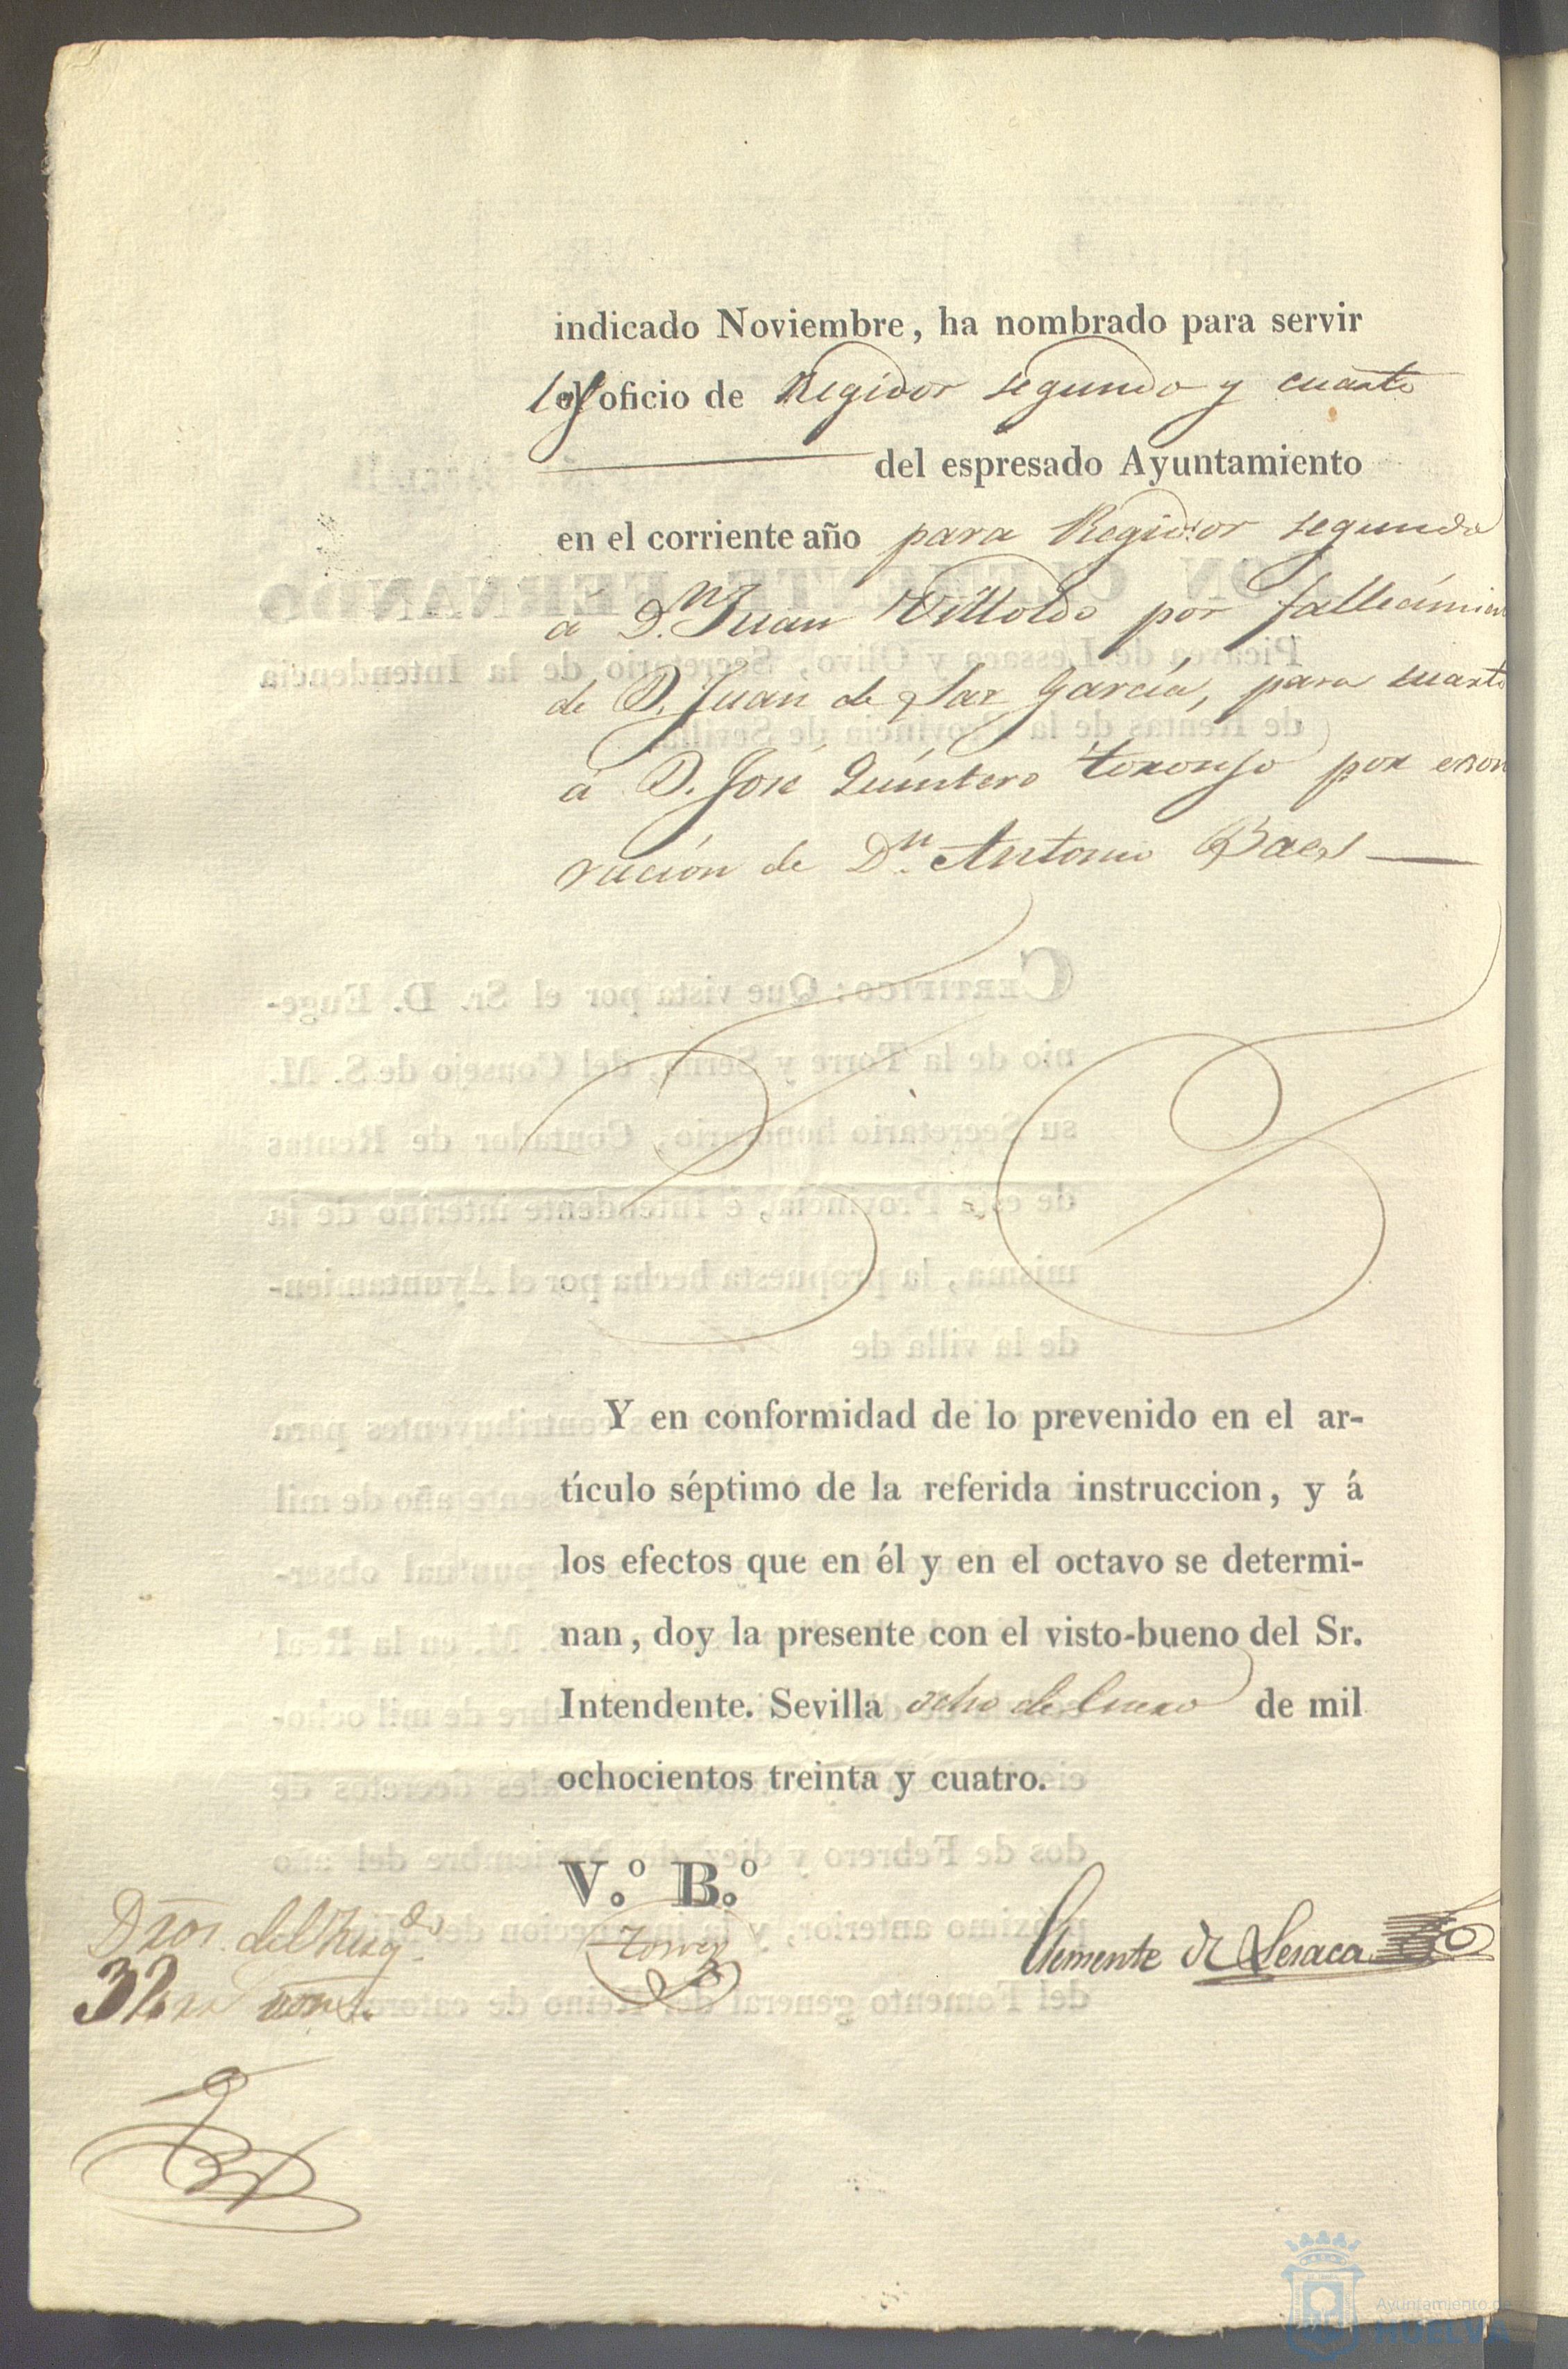 indicado Noviembre, ha nombrado para servir
los oficio de Regidor segundo y cuarto
del espresado Ayuntamiento
en el corriente año para Regidor segundo
á D.n Juan Villoldo por fallecimien
de D. Juan de Saz García, para cuarto
á D. José Quintero toronjo por exon
racion de Dn. Antonio Baez
Y en conformidad de lo prevenido en el ar-
tículo séptimo de la referida instruccion, y á
los efectos que en él y en el octavo se determi-
nan, doy la presente con el visto-bueno del Sr.
Intendente. Sevilla ocho de Enero de mil
ochocientos treinta y cuatro.
V.º B.º
Torre
Clemente de Lesaca
Dros. del
32
Ayuntamiento de
HUELVA